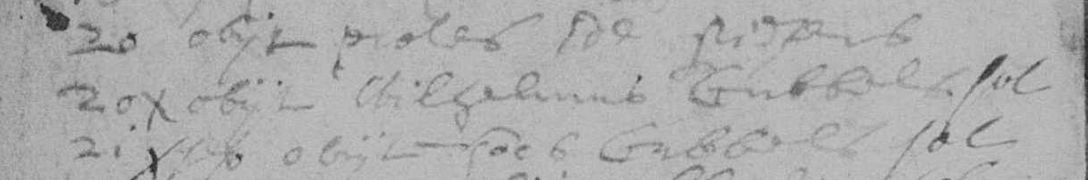 20 obijt proles Joe
20 x obijt Wilhelmus Gubbels sol
21 obijt Joes Gubbels sol